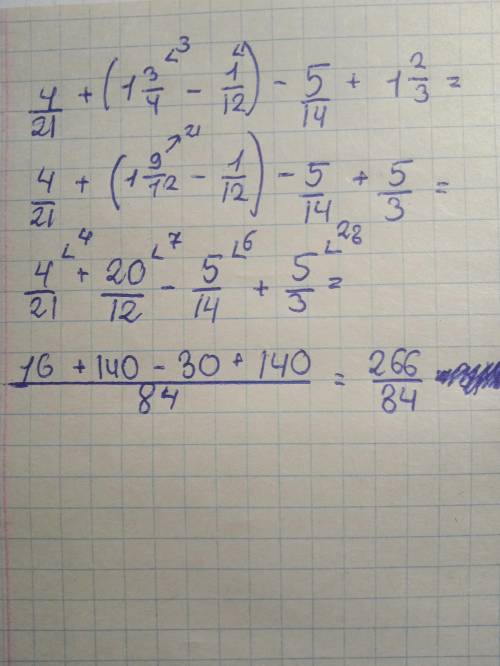 4/21 + (1 3/4 ⌞3 - 1/12 ⌞1) - 5/14 + 1 2/3 =
4/21 + (1 9/12 ↗21 - 1/12) - 5/14 + 5/3 =
4/21 ⌞4 + 20/12 ⌞7 - 5/14 ⌞6 + 5/3 ⌞28 =
16 + 140 - 30 + 140 / 84 = 266/84